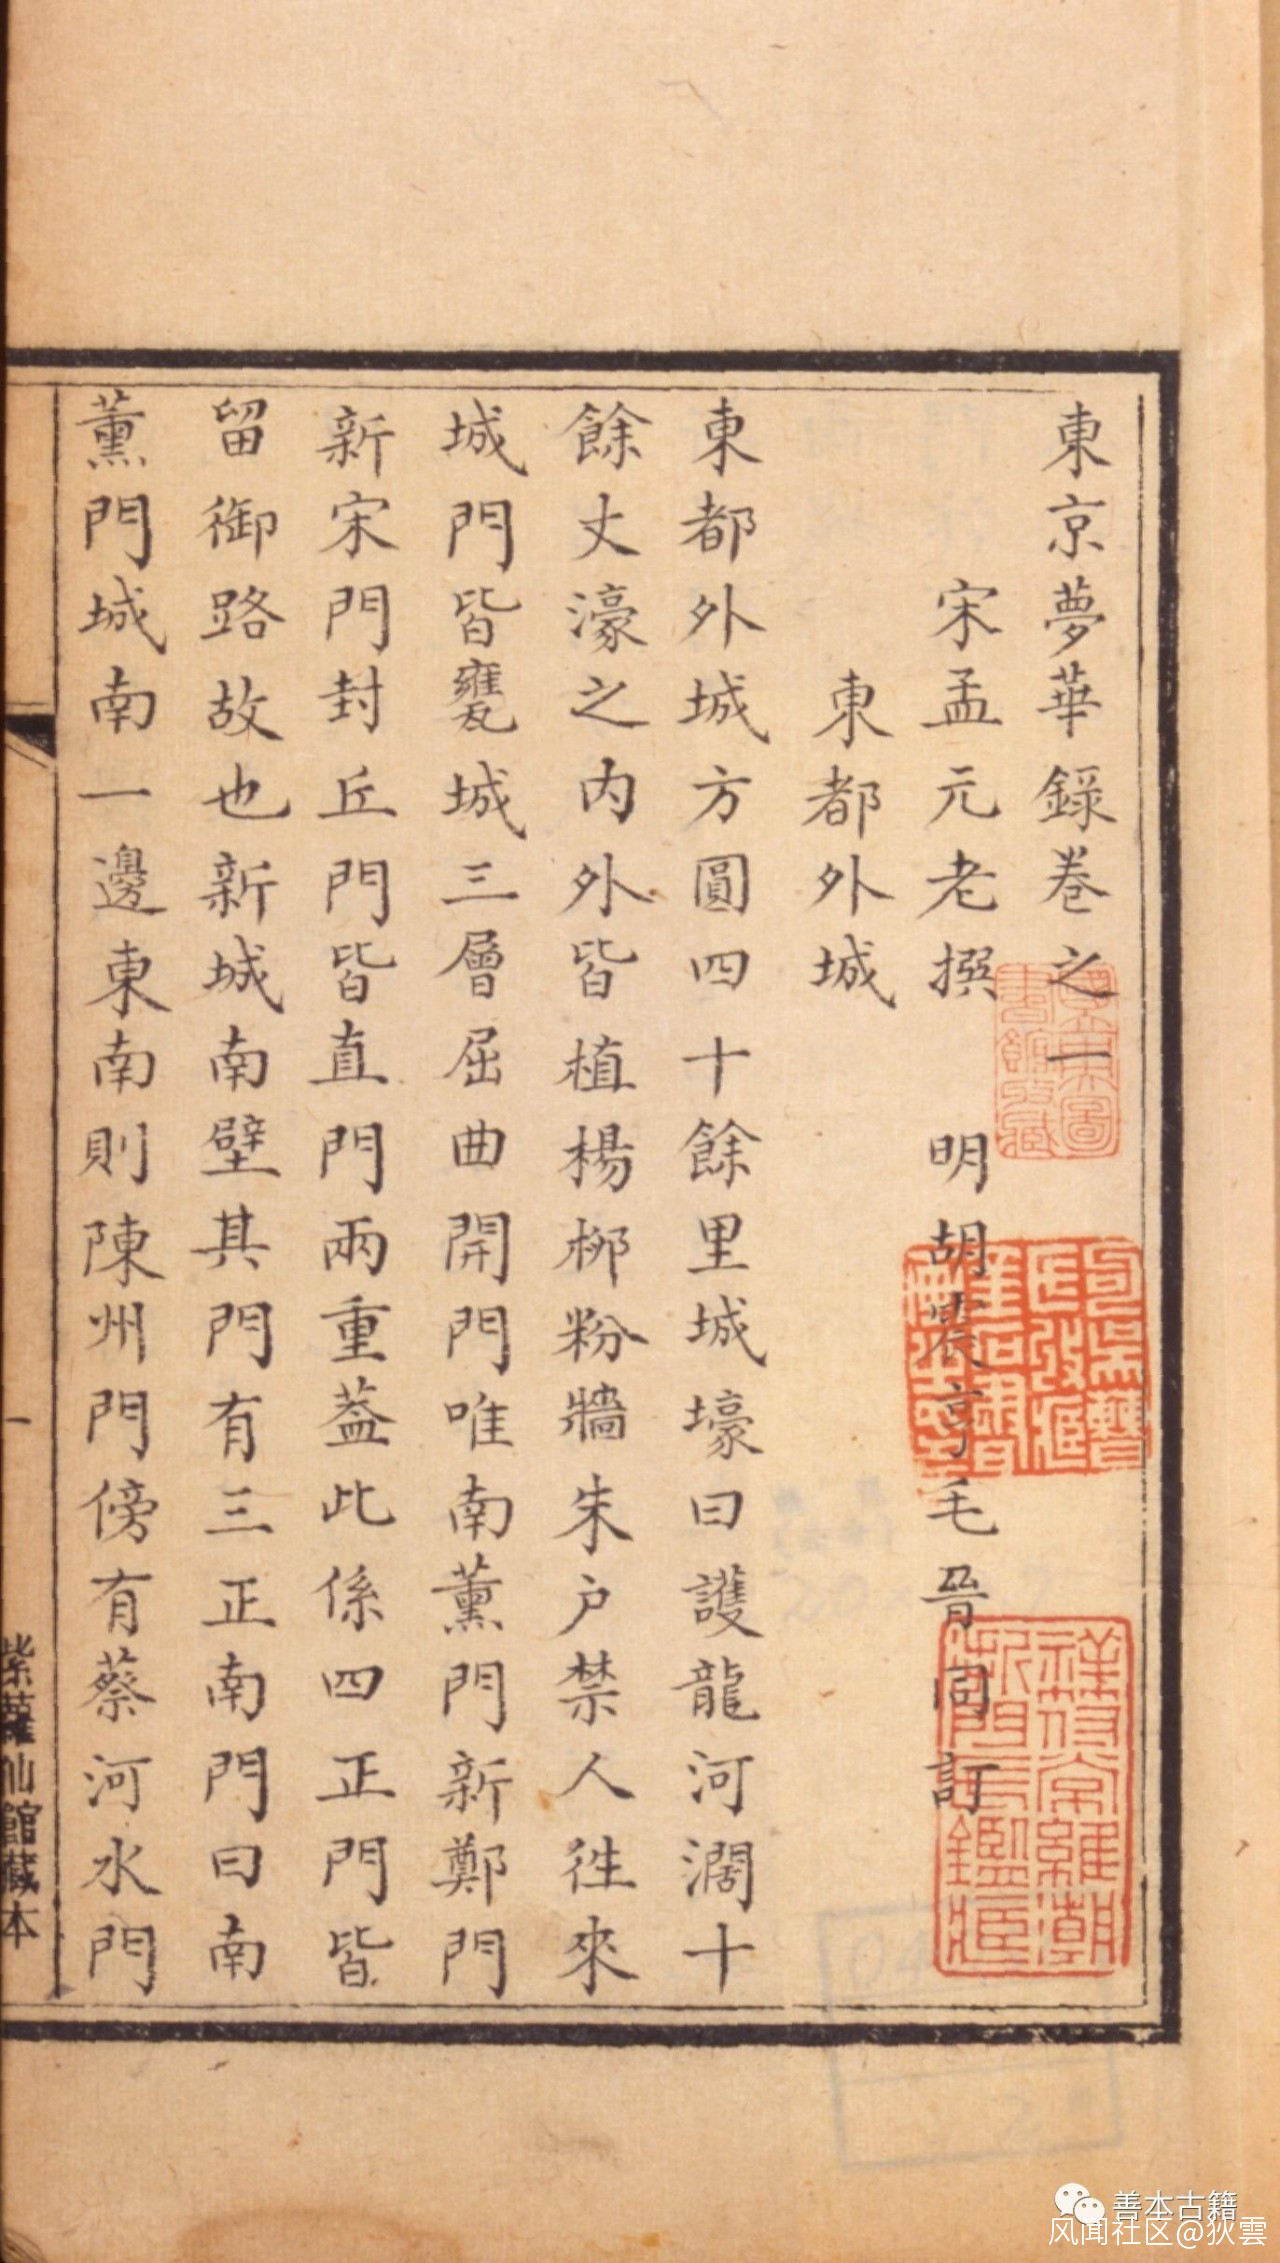 東京夢華錄卷之一
宋孟元老撰　明胡震亨毛晉同訂
東都外城
東都外城方圓四十餘里城壕曰護龍河濶十
餘丈濠之内外皆植楊桺粉牆朱户禁人徃來
城門皆甕城三層屈曲開門唯南薰門新鄭門
新宋門封丘門皆直門兩重葢此係四正門皆
留御路故也新城南壁其門有三正南門曰南
薰門城南一邊東南則陳州門傍有蔡河水門
一
紫蘿仙館藏本
國立北京圖書館收藏
祥符常維潮
善本古籍
风闻社区@狄雲